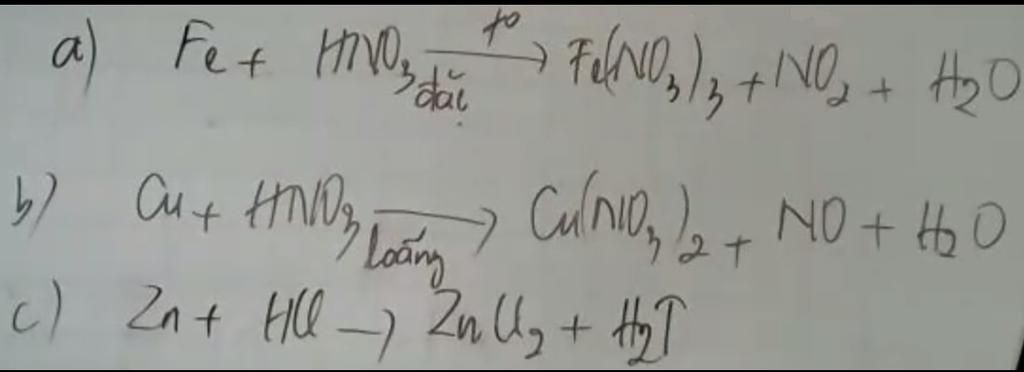 a) Fe + HNO₃ đặc —t⁰→ Fe(NO₃)₃ + NO₂ + H₂O
b) Cu + HNO₃ loãng → Cu(NO₃)₂ + NO + H₂O
c) Zn + HCl → ZnCl₂ + H₂↑